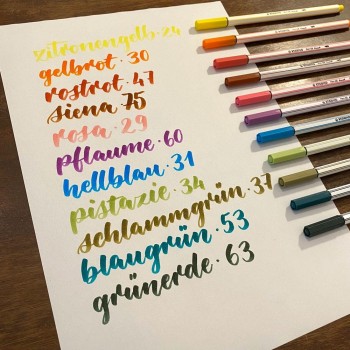 zitronengelb · 24
gelbrot · 30
rostrot · 47
siena · 75
rosa · 29
pflaume · 60
hellblau · 31
pistazie · 34
schlammgrün · 37
blaugrün · 53
grünerde · 63